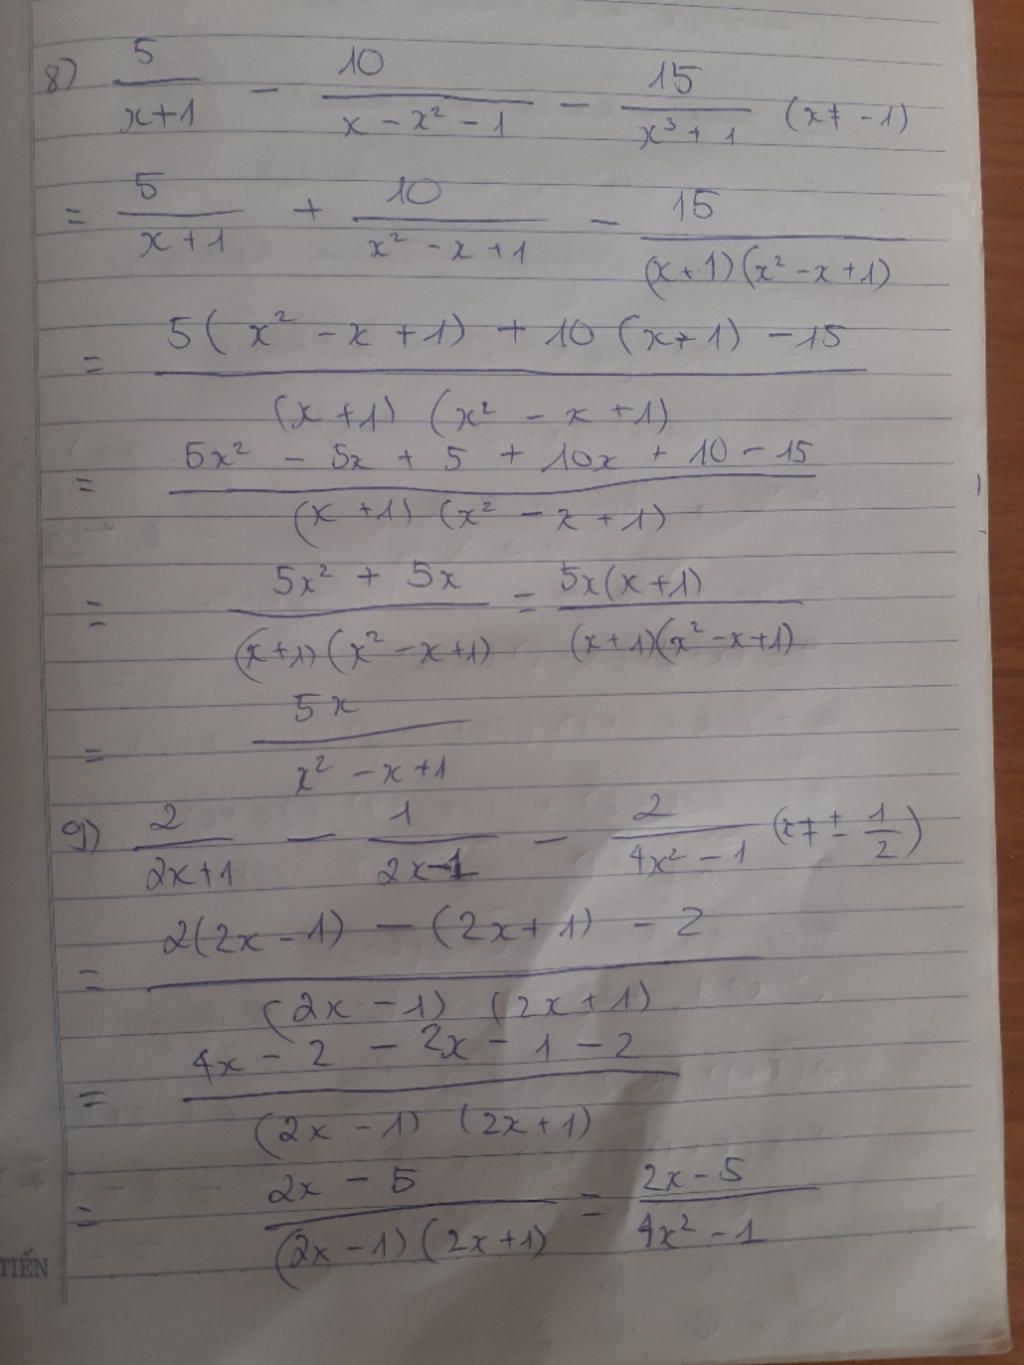 8) 5/(x+1) - 10/(x - x² - 1) - 15/(x³ + 1) (x ≠ -1)
= 5/(x+1) + 10/(x² - x + 1) - 15/((x+1)(x² - x + 1))
= (5(x² - x + 1) + 10(x+1) - 15)/((x+1)(x² - x + 1))
= (5x² - 5x + 5 + 10x + 10 - 15)/((x+1)(x² - x + 1))
= (5x² + 5x)/((x+1)(x² - x + 1)) = 5x(x+1)/((x+1)(x² - x + 1))
= 5x/(x² - x + 1)
9) 2/(2x+1) - 1/(2x-1) - 2/(4x² - 1) (x ≠ ± 1/2)
= (2(2x - 1) - (2x+1) - 2)/((2x - 1)(2x+1))
= (4x - 2 - 2x - 1 - 2)/((2x - 1)(2x+1))
= (2x - 5)/((2x - 1)(2x+1)) = (2x - 5)/(4x² - 1)
TIẾN